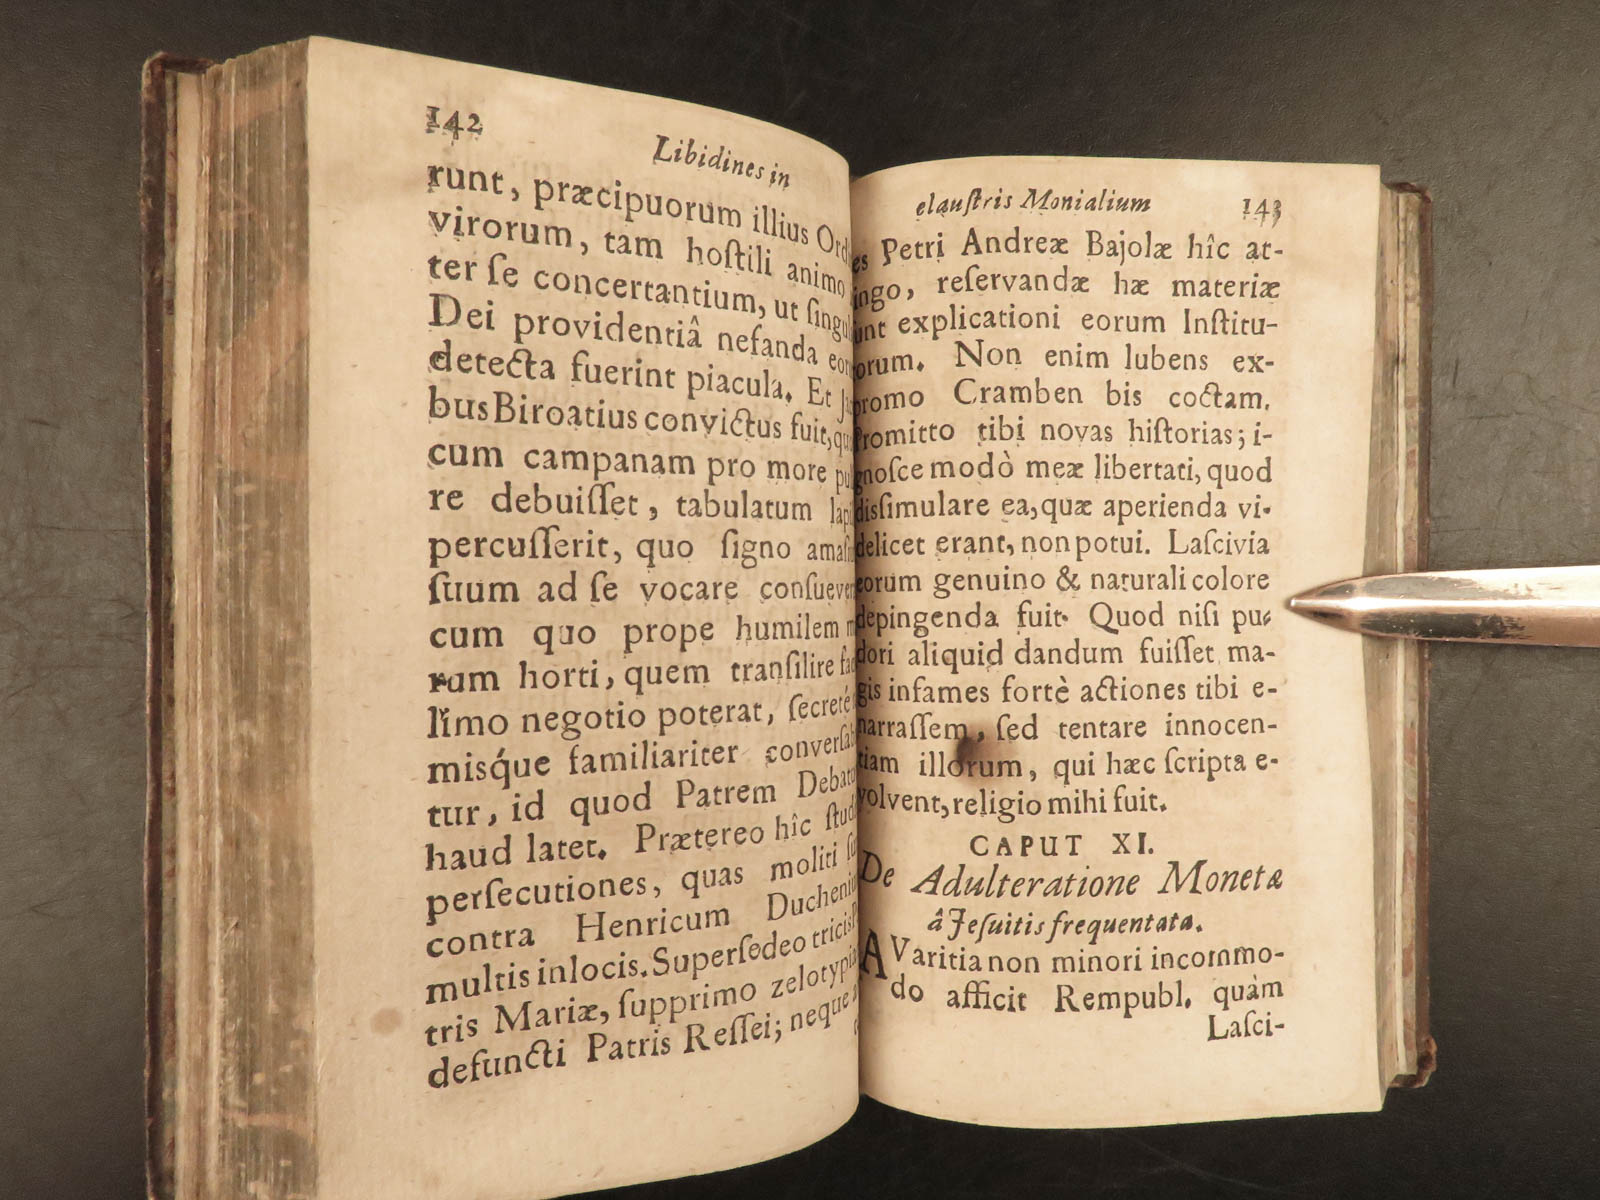 142
Libidines in
runt, præcipuorum illius
virorum, tam hoſtili animo
ter ſe concertantium, ut
Dei providentiâ nefanda
detecta fuerint piacula. Et
bus Biroatius convictus fuit,
cum campanam pro more
re debuiſſet, tabulatum
percuſſerit, quo ſigno
ſuum ad ſe vocare
cum quo prope humilem
rum horti, quem tranſilire
limo negotio poterat, ſecretè
miſque familiariter
tur, id quod Patrem
haud latet. Prætereo hîc
perſecutiones, quas moliti
contra Henricum
multis in locis. Superſedeo
tris Mariæ, ſupprimo
defuncti Patris Reſſei; neque
elauſtris Monialium
143
es Petri Andreæ Bajolæ hîc at-
ingo, reſervandæ hæ materiæ
unt explicationi eorum Inſtitu-
orum. Non enim lubens ex-
promo Cramben bis coctam.
Promitto tibi novas hiſtorias; i-
gnoſce modò meæ libertati, quod
diſſimulare ea, quæ aperienda vi-
delicet erant, non potui. Laſcivia
eorum genuino & naturali colore
depingenda fuit. Quod niſi pu-
dori aliquid dandum fuiſſet ma-
gis infames fortè actiones tibi e-
narraſſem, ſed tentare innocen-
tiam illorum, qui hæc ſcripta e-
volvent, religio mihi fuit.
CAPUT XI.
De Adulteratione Monetæ
â Jeſuitis frequentata.
AVaritia non minori incommo-
do afficit Rempubl. quàm
Laſci-